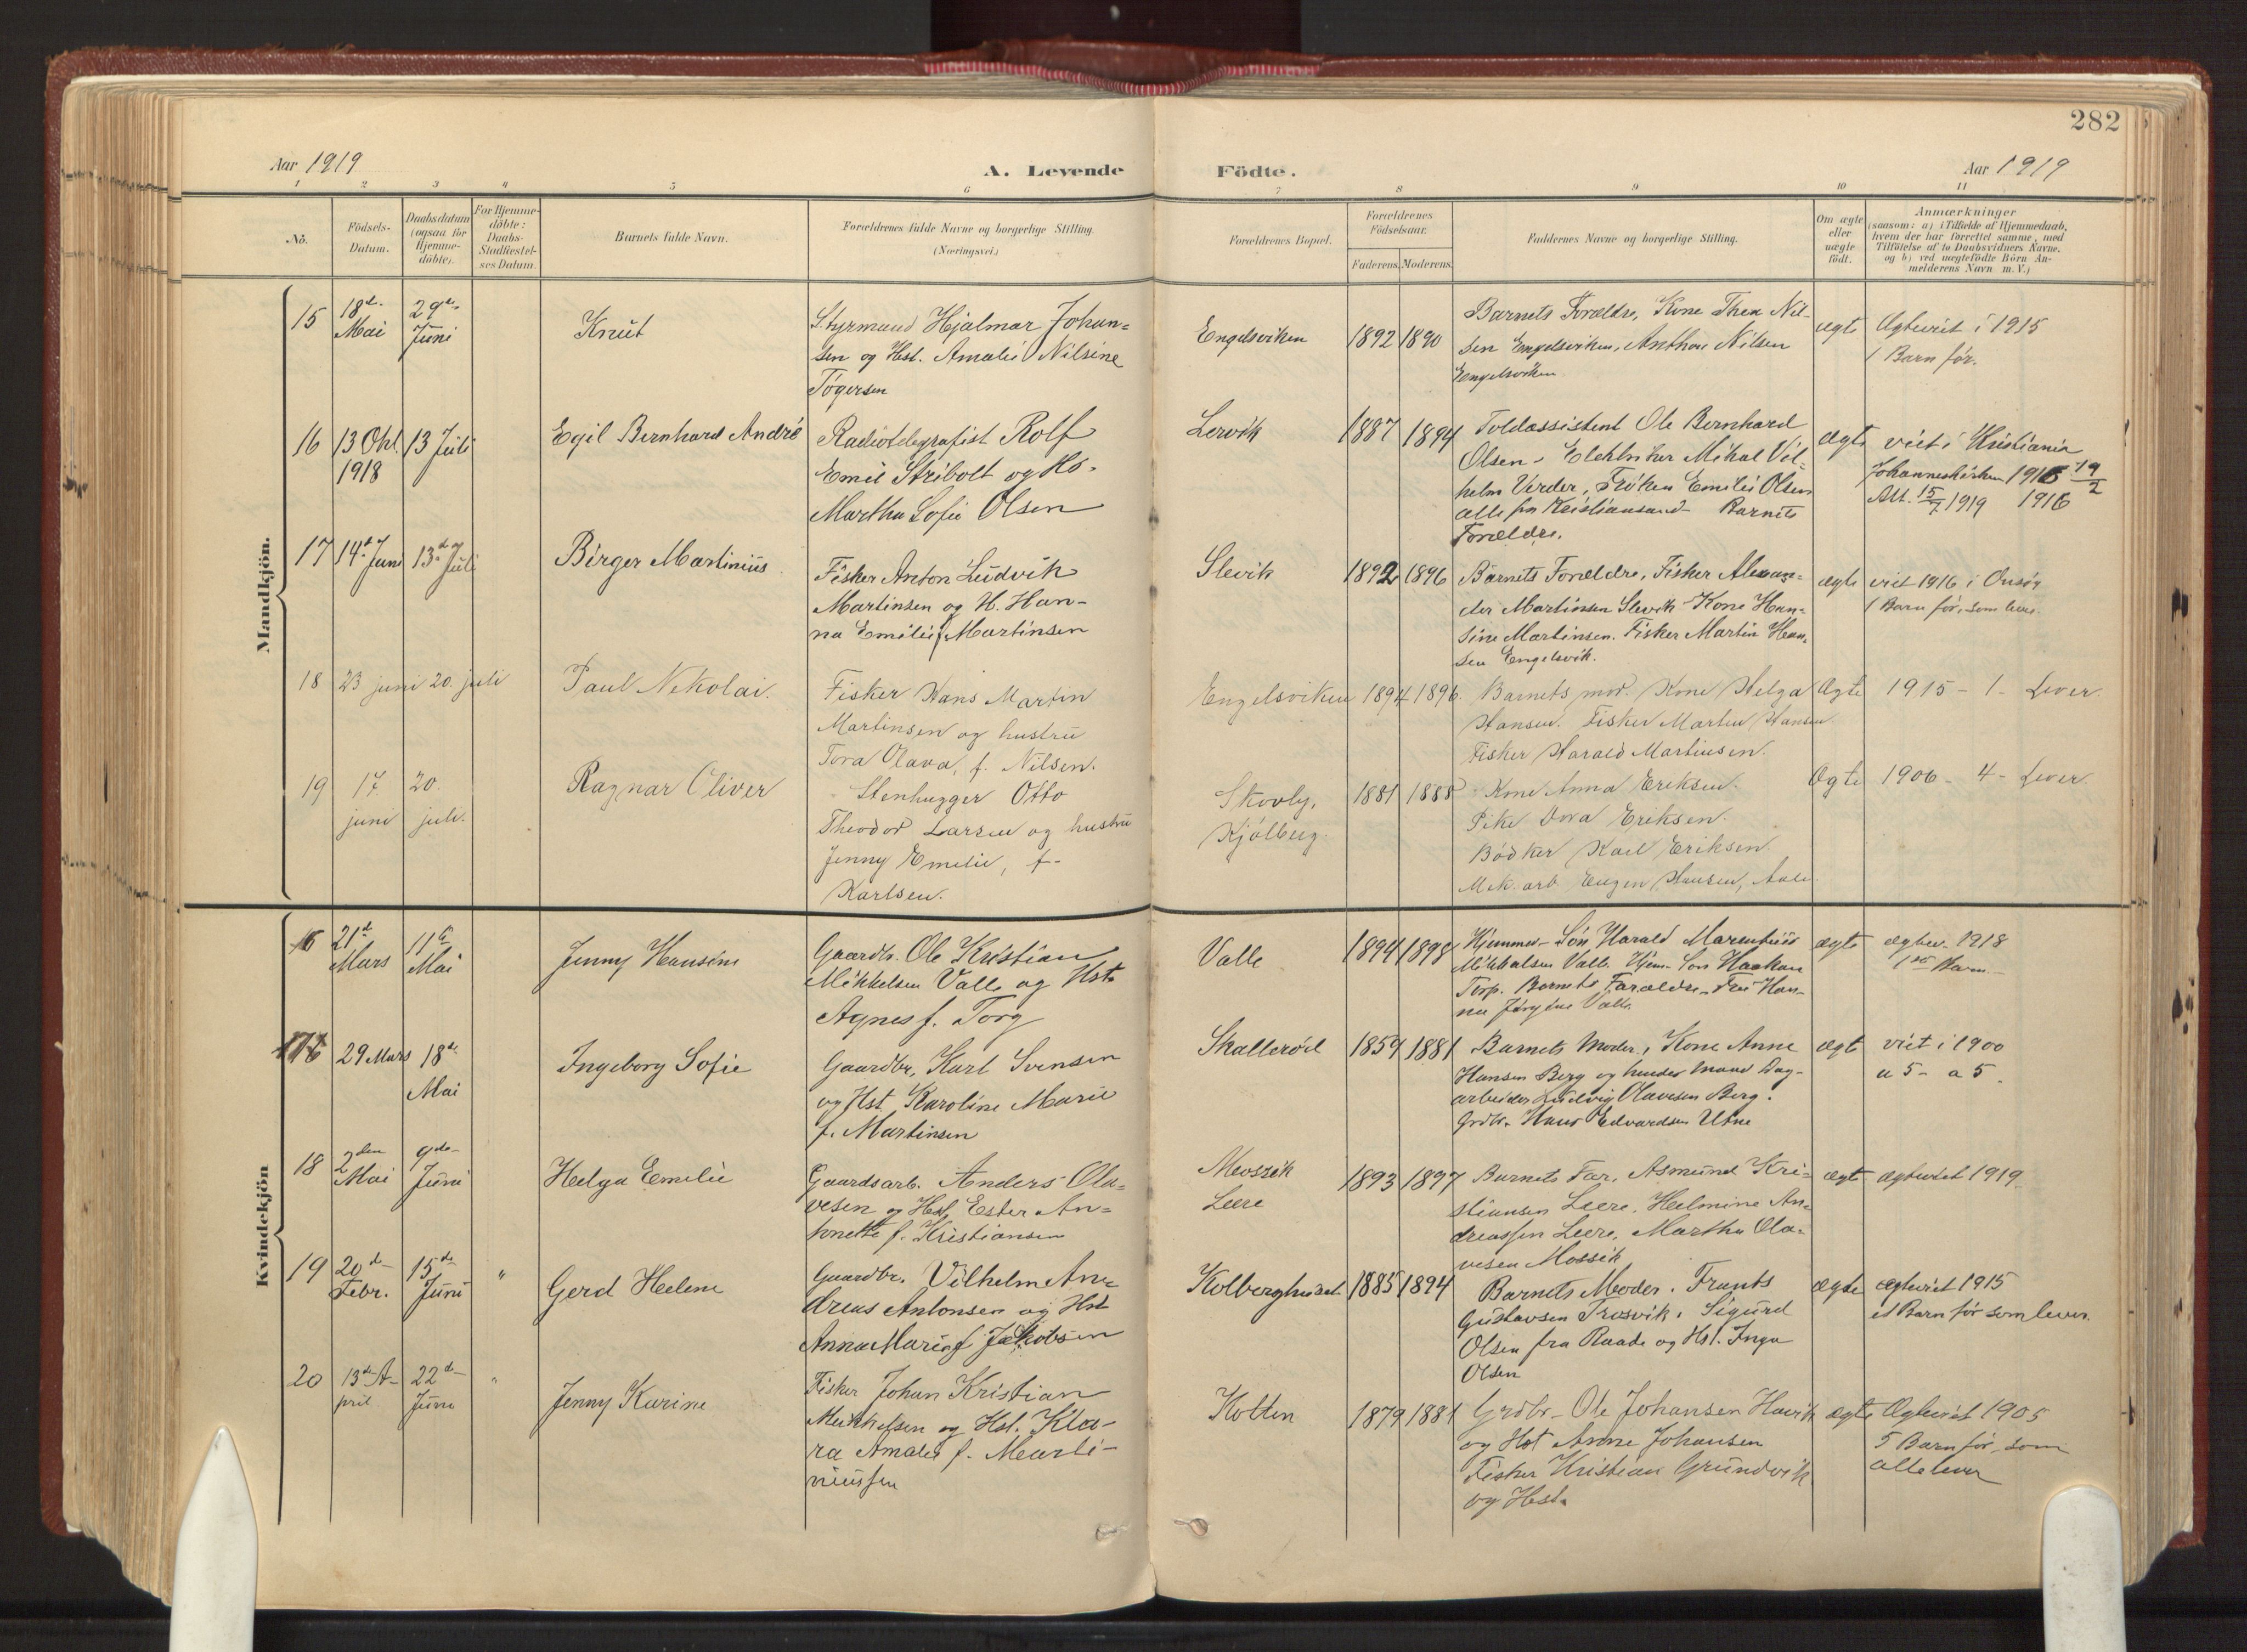 282
Aar 1919
A. Levende
Födte.
Aar 1919
1 2 3 4 5 6 7 8 9 10 11
No.
Födsels-
Datum.
Daabsdatum
(ogsaa for
Hjemme-
döbte).
For Hjemme-
döbte:
Daabs-
Stadfæstel-
ses Datum.
Barnets fulde Navn.
Forældrenes fulde Navne og borgerlige Stilling.
(Næringsvei.)
Forældrenes Bopæl.
Forældrenes
Födselsaar.
Faderens. Moderens.
Faddernes Navne og borgerlige Stilling.
Om ægte
eller
uægte
födt.
Anmærkninger
(saasom: a) i Tilfælde af Hjemmedaab,
hvem der har forrettet samme, med
Tilföielse af to Daabsvidners Navne.
og b) ved uægtefödte Börn An-
melderens Navn m. V.)
Mandkjön.
15
18d.
Mai
29de
Juni
Knut
Styrmand Hjalmar Johan-
sen og Hst. Amalie Nilsine
Togersen
Engelsviken
1892 1890
Barnets Forældre, Kone Thea Nil-
sen Engelsviken, Anthon Nilsen
Engelsviken
ægte
Ægteviet i 1915
1 Barn før.
16
13 Okt.
1918
13 Juli
Egil Bernhard André
Radiotelegrafist Rolf
Emil Stribolt og Hs.
Martha Sofie Olsen
Lervik
1887 1894
Toldassistent Ole Bernhard
Olsen - Elektriker Mikal Vil-
helm Verder, Frøken Emilie Olsen
alle fra Kristiansand - Barnets
Forældre.
ægte
viet i Kristiania
Johanneskirken 1916 19/2
Att. 15/7 1919 1916
17
14d Juni
13de Juli
Birger Martinius
Fisker Anton Ludvik
Martinsen og H. Han-
na Emilie f Martinsen
Slevik
1892 1896
Barnets Forældre, Fisker Alexan-
der Martinsen Slevik - Kone Han-
sine Martinsen. Fisker Martin Han-
sen Engelsvik.
ægte
viet 1916 i Onsøy
1 Barn før, som lever.
18
23 juni
20. juli
Paul Nikolai.
Fisker Hans Martin
Martinsen og hustru
Tora Olava, f. Nilsen.
Engelsviken
1894 1896.
Barnets mod. Kone Helga
Hansen. Fisker Martin Hansen.
Fisker Harald Martinsen.
Ægte
1915 - 1 - Lever.
19
17.
juni
20.
juli.
Ragnar Oliver
Stenhugger Otto
Theodor Larsen og hustru
Jenny Emelie, f.
Karlsen.
Skovly,
Kjølberg.
1881 1888
Kone Anna Eriksen.
Pike Dora Eriksen.
Bødker Karl Eriksen.
Mek. arb. Eugen Hansen,
Ægte
1906 - 4 - Lever.
Kvindekjön
16
21d
Mars
11te
Mai
Jenny Hansine
Gaardbr. Ole Kristian
Mikkelsen Valle og Hst.
Agnes f. Torg
Valle
1894 1898
Hjemmev. Søn Harald
Mikkelsen Valle. Hjem. Søn Haakon
Torp. Barnets Forældre. Fru Han-
na Jørgine Valle.
ægte
ægtev. 1918
1ste Barn.
17
29 Mars
18de
Mai
Ingeborg Sofie
Gaardbr. Karl Svensen
og Hst Karoline Marie
f. Martinsen
Skallerød
1859 1881
Barnets Moder, Kone Anne
Hansen Berg og hendes Mand Dag-
arbeider Ludvig Olavesen Berg.
Grdbr. Hans Edvardsen Utne
ægte
viet i 1900
u 5 - a 5.
18
2den
Mai
9de
Juni
Helga Emilie
Gaardsarb. Anders Ola-
vesen og Hst. Ester An-
tonette f. Kristiansen
Mossik
Leere
1893 1897
Barnets Far, Asmund Kri-
stiansen Leere, Helmine An-
dreassen Leere, Martha Ola-
vesen Mossik
ægte
ægteviet 1919
19
20de
Febr.
15de
Juni
"
Gerd Helene
Gaardbr. Vilhelm An-
dreas Antonsen og Hst
Anna Marie f Jakobsen
Kolberghuset
1885 1894
Barnets Moder. Frants
Gustavsen Trosvik, Sigurd
Olsen fra Raade og Hst. Inga
Olsen
ægte
ægteviet 1915
et Barn før som lever.
20
13de A-
pril
22de
Juni
"
Jenny Karine
Fisker Johan Kristian
Mikkelsen og Hst. Kla-
ra Amalie f. Marti-
niussen
Holten
1879 1881
Grdbr. Ole Johansen Havik
og Hst Anne Johansen
Fisker Kristian Grundvik
og Hst.
ægte
Ægteviet 1905
5 Barn før, som
alle lever